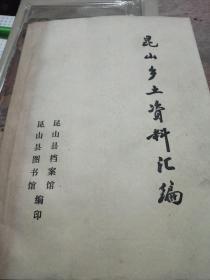 昆山乡土资料汇编
昆山县档案馆
昆山县图书馆
编印